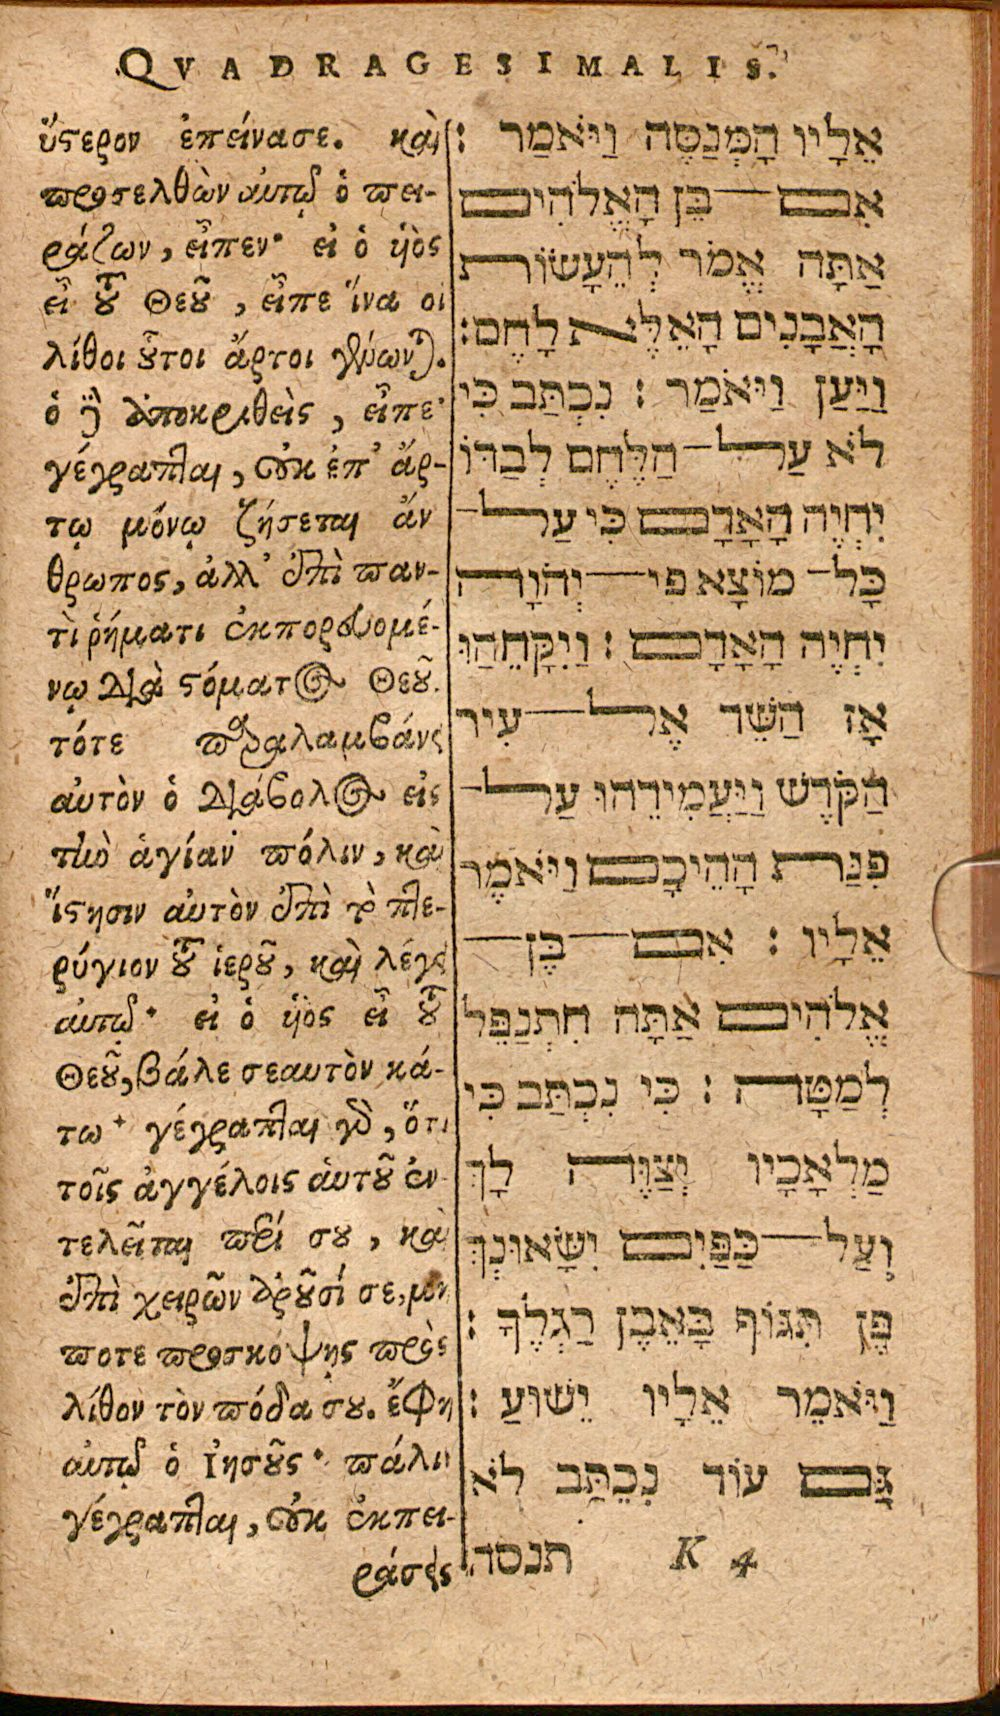 QVADRAGESIMALIS.
ὕστερον ἐπείνασε. καὶ
προσελθὼν αὐτῷ ὁ πει-
ράζων, εἶπεν· εἰ ὁ ὑὸς
εἶ τοῦ Θεοῦ, εἶπε ἵνα οἱ
λίθοι οὗτοι ἄρτοι γένωνται.
ὁ δὲ ἀποκριθεὶς, εἶπε·
γέγραπται, Οὐκ ἐπ' ἄρ-
τῳ μόνῳ ζήσεται ἄν
θρωπος, ἀλλ' ἐπὶ παν-
τὶ ῥήματι ἐκπορευομέ-
νῳ Διὰ στόματος Θεοῦ.
τότε παραλαμβάνει
αὐτὸν ὁ Διάβολος εἰς
τὴν ἁγίαν πόλιν, καὶ
ἵστησιν αὐτὸν ἐπὶ τὸ πτε-
ρύγιον τοῦ ἱεροῦ, καὶ λέγει
αὐτῷ· εἰ ὁ ὑὸς εἶ τοῦ
Θεοῦ, βάλε σεαυτὸν κά-
τω· γέγραπται γὰρ, ὅτι
τοῖς ἀγγέλοις αὑτοῦ ἐν
τελεῖται περί σου, καὶ
ἐπὶ χειρῶν ἀροῦσί σε, μή
ποτε προσκόψῃς πρὸς
λίθον τὸν πόδα σου. ἔφη
αὐτῷ ὁ Ἰησοῦς· πάλιν
γέγραπται, Οὐκ ἐκπει-
ράσεις
אֵלָיו הָמְּנַסֶּה וַיֹּאמַר :
אִם־בֵּן הָאֱלֹהִים
אַתָּה אֱמֹר לְהֵעָשׂוֹת
הָאֲבָנִים הָאֵלֶּה לָחֶם:
וַיַּעַן וַיֹּאמַר : נִכְתַּב כִּי
לֹא עַל־הַלֶּחֶם לְבַדּוֹ
יִחְיֶה הָאָדָם כִּי עַל־
כָּל־מוֹצָא פִי־יְהֹוָה
יִחְיֶה הָאָדָם : וַיִּקָּחֵהוּ
אָז הַשֵּׁד אֶל־עִיר
הַקֹּדֶשׁ וַיַּעֲמִידֵהוּ עַל־
פִּנַּת הָהֵיכָם וַיֹּאמֶר
אֵלָיו : אִם־בֶּן־
אֱלֹהִים אַתָּה חִתְנַפֵּל
לְמַטָּה : כִּי נִכְתַּב כִּי
מַלְאָכָיו יְצַוֶּה לָךְ
וְעַל־כַּפַּיִם יִשָּׂאוּנְךָ
פֶּן תִּגּוֹף בָּאֵבֶן רַגְלֶךָ :
וַיֹּאמֵר אֵלָיו יֵשׁוּעַ :
גָּם עוֹד נִכְתַּב לֹא
תנסה K 4